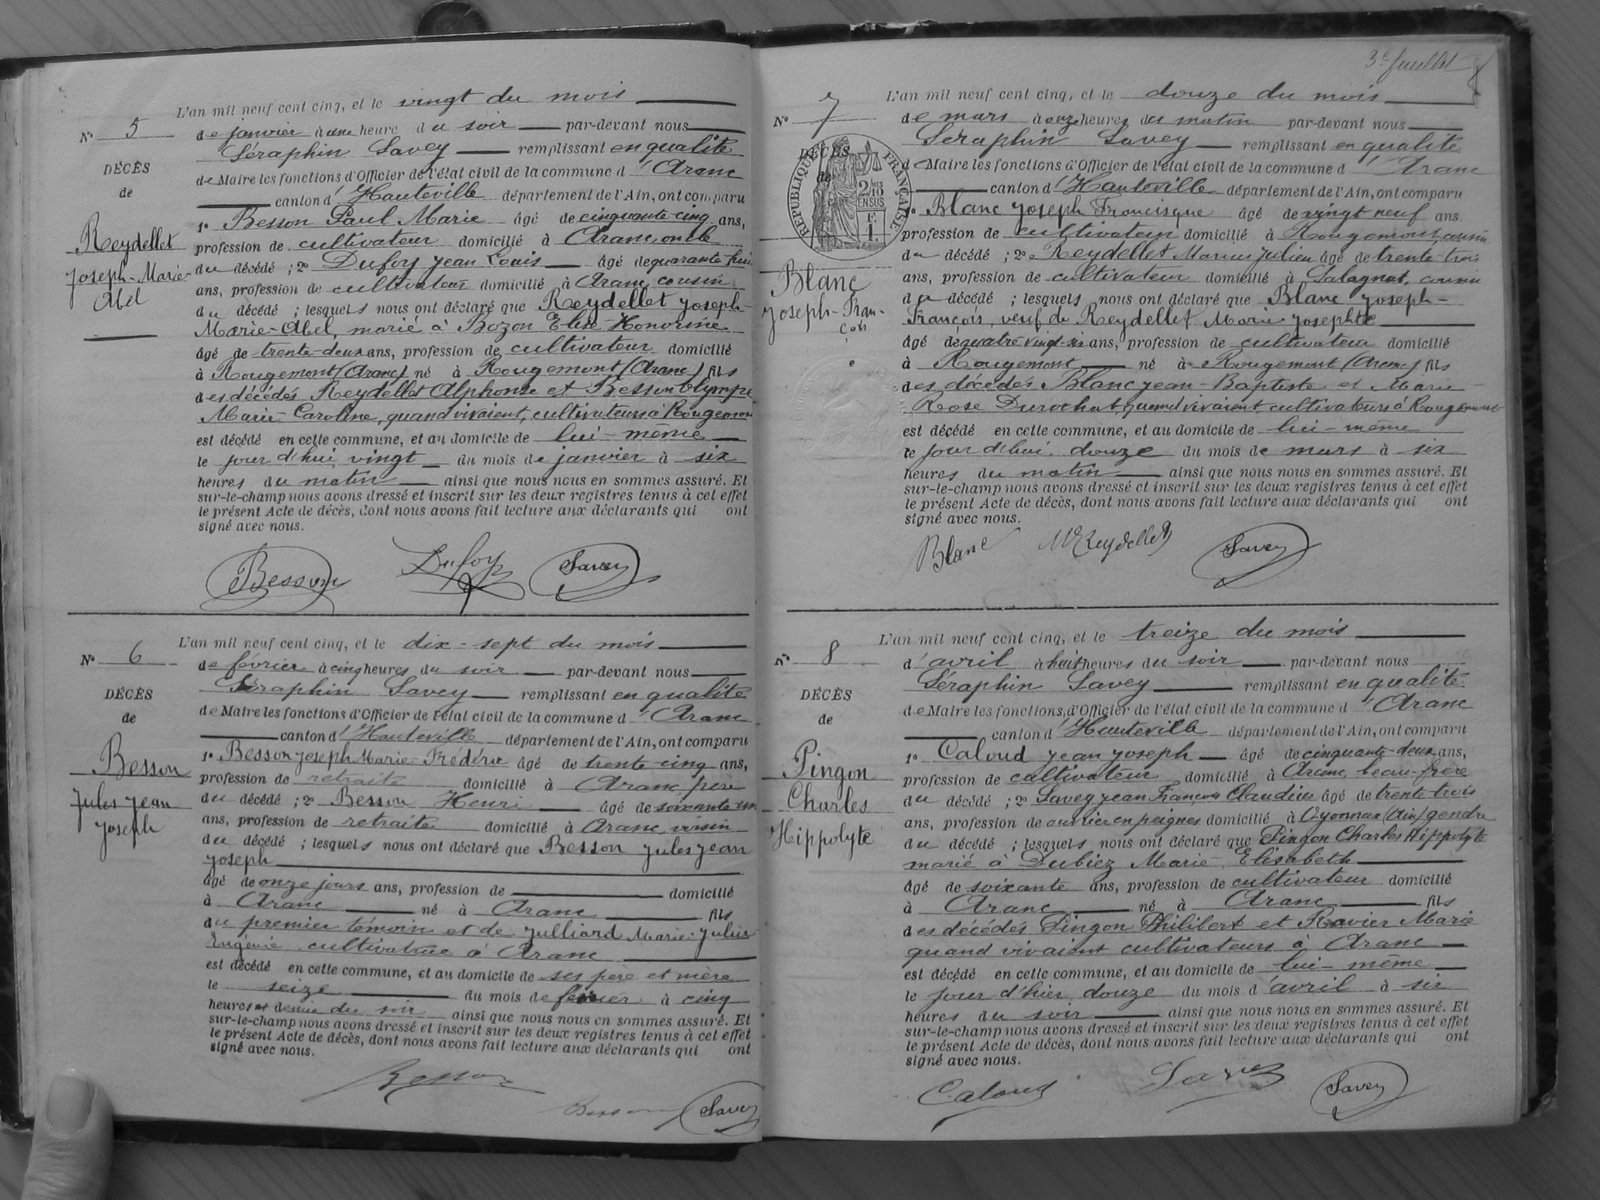 L'an mil neuf cent cinq, et le vingt du mois
N° 5
de janvier à une heure du soir par-devant nous
Séraphin Savey remplissant en qualité
DÉCÈS
de Maire les fonctions d'Officier de l'état civil de la commune d'Aranc
de
canton d'Hauteville département de l'Ain, ont comparu
1° Besson Paul Marie âgé de cinquante cinq ans,
Reydellet
profession de cultivateur domicilié à Aranc, oncle
Joseph-Marie-
du décédé ; 2° Dufoy Jean Louis âgé de quarante huit
Abel
ans, profession de cultivateur domicilié à Aranc, cousin
du décédé ; lesquels nous ont déclaré que Reydellet Joseph-
Marie-Abel, marié à Bozon Elise Honorine
âgé de trente-deux ans, profession de cultivateur domicilié
à Rougemont (Aranc) né à Rougemont (Aranc) fils
des décédés Reydellet Alphonse et Besson Olympe
Marie-Caroline, quand vivaient, cultivateurs à Rougemont
est décédé en cette commune, et au domicile de lui-même
le jour d'hui vingt du mois de janvier à six
heures du matin ainsi que nous nous en sommes assuré. Et
sur-le-champ nous avons dressé et inscrit sur les deux registres tenus à cet effet
le présent Acte de décès, dont nous avons fait lecture aux déclarants qui ont
signé avec nous.
Besson Dufoy Savey
L'an mil neuf cent cinq, et le dix-sept du mois
N° 6
de février à cinq heures du soir par-devant nous
Séraphin Savey remplissant en qualité
DÉCÈS
de Maire les fonctions d'Officier de l'état civil de la commune d'Aranc
de
canton d'Hauteville département de l'Ain, ont comparu
1° Besson Joseph Marie Frédéric âgé de trente cinq ans,
Besson
profession de retraité domicilié à Aranc, père
Jules Jean
du décédé ; 2° Besson Henri âgé de soixante un
Joseph
ans, profession de retraité domicilié à Aranc, voisin
du décédé ; lesquels nous ont déclaré que Besson Jules Jean
Joseph
âgé de onze jours ans, profession de domicilié
à Aranc né à Aranc fils
du premier témoin et de Julliard Marie-Julie
Eugénie cultivatrice à Aranc
est décédé en cette commune, et au domicile de ses père et mère
le seize du mois de février à cinq
heures et demie du soir ainsi que nous nous en sommes assuré. Et
sur-le-champ nous avons dressé et inscrit sur les deux registres tenus à cet effet
le présent Acte de décès, dont nous avons fait lecture aux déclarants qui ont
signé avec nous.
Besson
Besson Savey
3e feuillet
L'an mil neuf cent cinq, et le douze du mois
N° 7
de mars à onze heures du matin par-devant nous
Séraphin Savey remplissant en qualité
DÉCÈS
de
RÉPUBLIQUE FRANÇAISE
de Maire les fonctions d'Officier de l'état civil de la commune d'Aranc
canton d'Hauteville département de l'Ain, ont comparu
1° Blanc Joseph Francisque âgé de vingt neuf ans.
profession de cultivateur domicilié à Rougemont, cousin
du décédé ; 2° Reydellet Marius Julien âgé de trente trois
Blanc
ans, profession de cultivateur domicilié à Lalagnat, cousin
Joseph-Fran-
çois
du décédé ; lesquels nous ont déclaré que Blanc Joseph-
François, veuf de Reydellet Marie Josephte
âgé de quatre vingt six ans, profession de cultivateur domicilié
à Rougemont né à Rougemont (Aranc) fils
des décédés Blanc Jean-Baptiste et Marie
Rose Durochat, quand vivaient cultivateurs à Rougemont
est décédé en cette commune, et au domicile de lui-même
le jour d'hui douze du mois de mars à six
heures du matin ainsi que nous nous en sommes assuré. Et
sur-le-champ nous avons dressé et inscrit sur les deux registres tenus à cet effet
le présent Acte de décès, dont nous avons fait lecture aux déclarants qui ont
signé avec nous.
Blanc Mus Reydellet Savey
L'an mil neuf cent cinq, et le treize du mois
N° 8
d'avril à huit heures du soir par-devant nous
Séraphin Savey remplissant en qualité
DÉCÈS
de Maire les fonctions d'Officier de l'état civil de la commune d'Aranc
de
canton d'Hauteville département de l'Ain, ont comparu
1° Caloud Jean Joseph âgé de cinquante-deux ans,
Pingon
profession de cultivateur domicilié à Aranc, beau-frère
Charles
du décédé ; 2° Savey Jean François Claudius âgé de trente trois
ans, profession de ouvrier en peignes domicilié à Oyonnax (Ain) gendre
Hippolyte
du décédé ; lesquels nous ont déclaré que Pingon Charles Hippolyte
marié à Dubiez Marie Elisabeth
âgé de soixante ans, profession de cultivateur domicilié
à Aranc né à Aranc fils
des décédés Pingon Philibert et Ravier Marie
quand vivaient cultivateurs à Aranc
est décédé en cette commune, et au domicile de lui-même
le jour d'hier douze du mois d'avril à six
heures du soir ainsi que nous nous en sommes assuré. Et
sur-le-champ nous avons dressé et inscrit sur les deux registres tenus à cet effet
le présent Acte de décès, dont nous avons fait lecture aux déclarants qui ont
signé avec nous.
Caloud Savey Savey